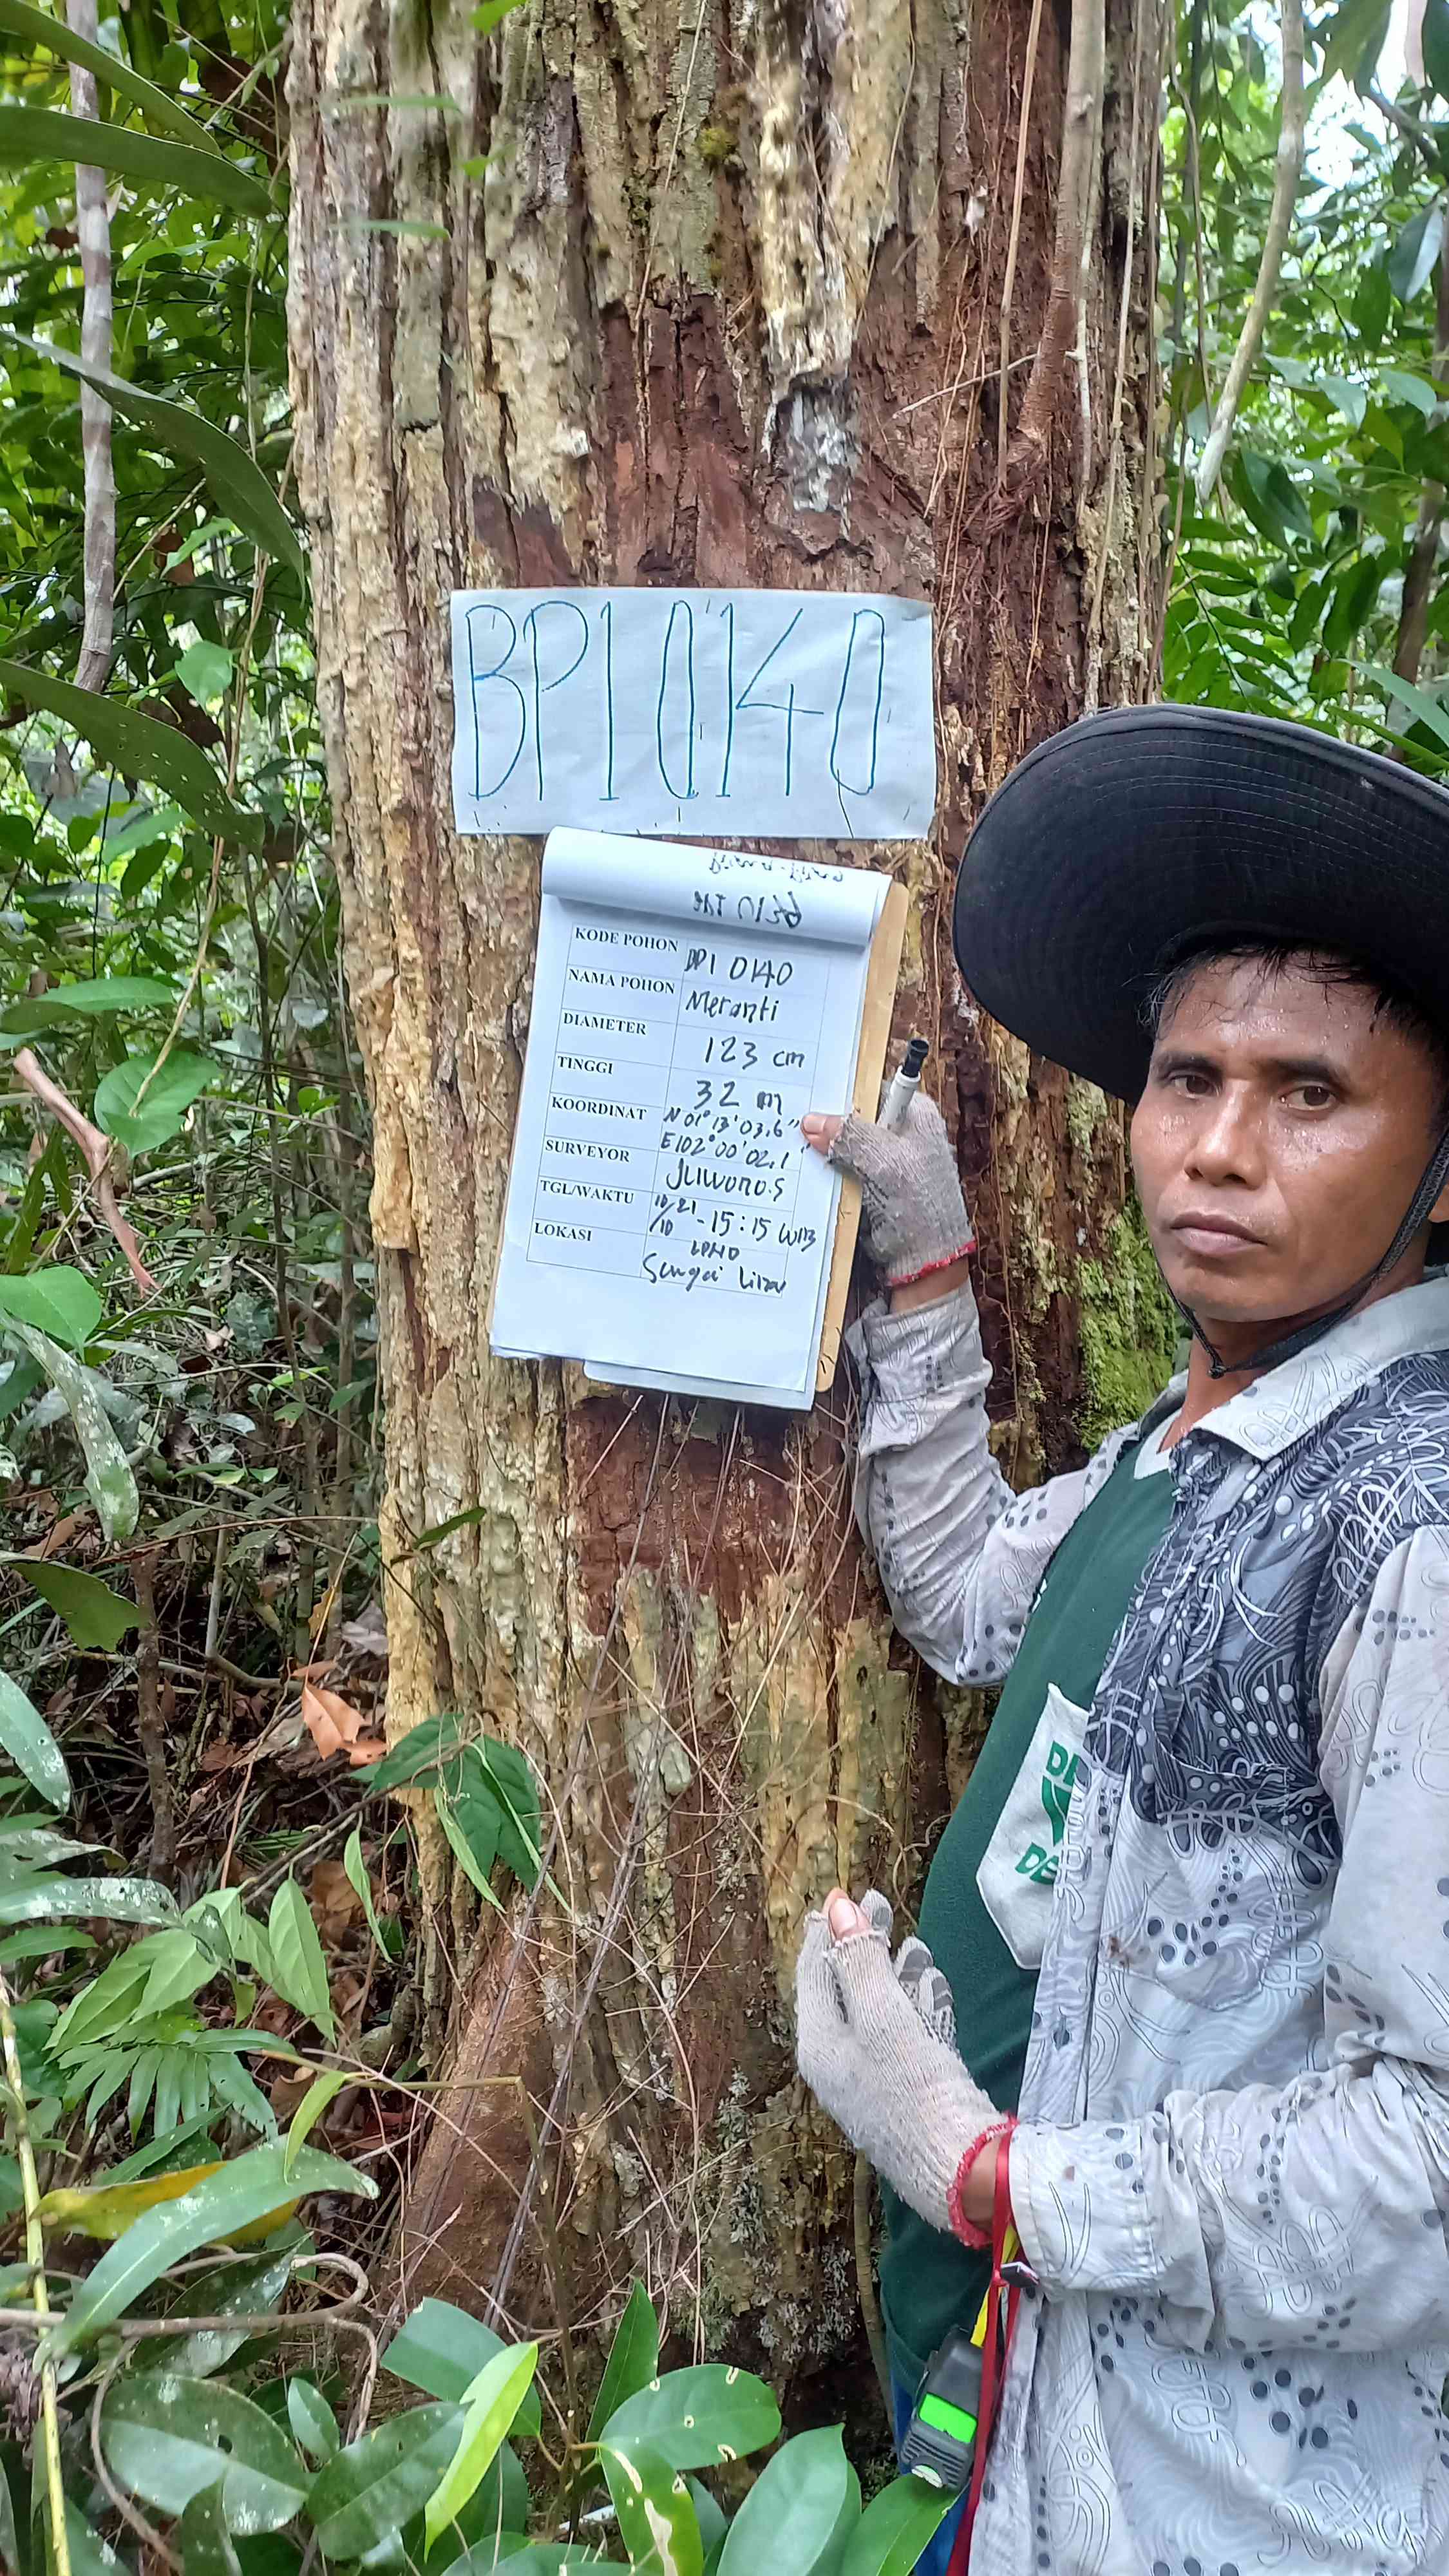 BP1 0140
KODE POHON BP1 0140
NAMA POHON Meranti
DIAMETER 123 cm
TINGGI 32 m
KOORDINAT N 01° 13' 03,6"
E102° 00' 02,1"
SURVEYOR JUWONO.S
TGL/WAKTU 10/10 21 - 15:15 WIB
LOKASI LPHD
Sungai Linau